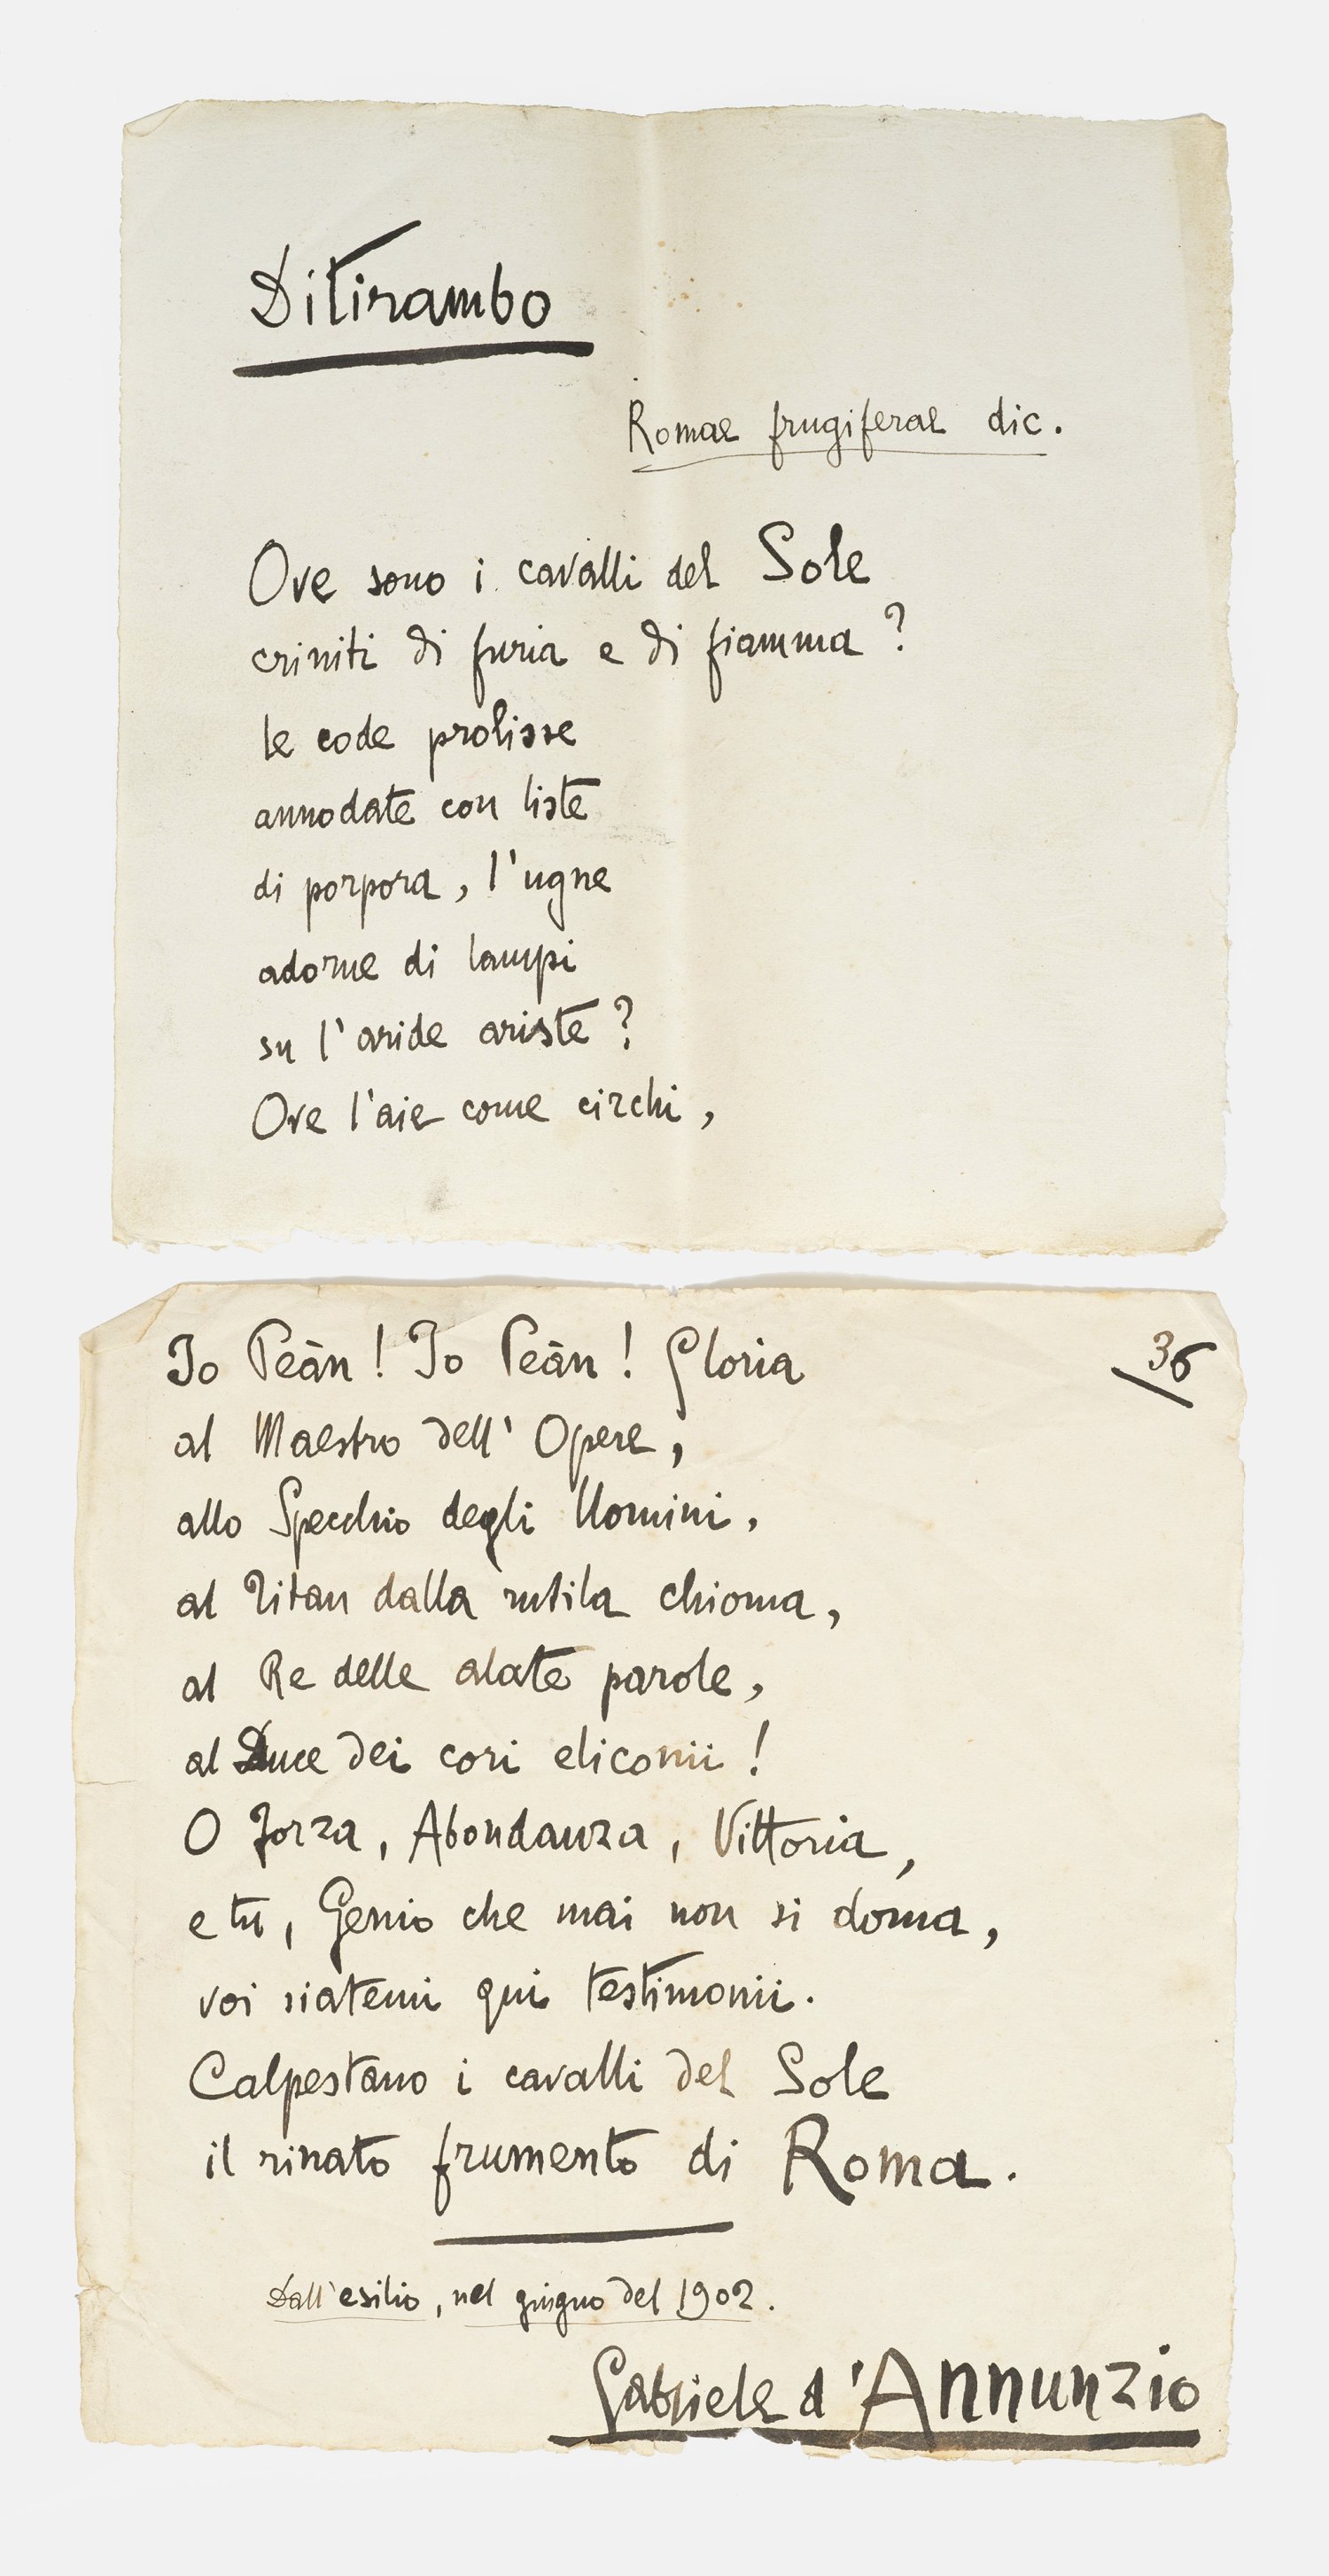 Ditirambo
Romae frugiferae dic.
Ove sono i cavalli del Sole
criniti di furia e di fiamma?
le code prolisse
annodate con liste
di porpora, l'ugne
adorne di lampi
su l'aride ariste?
Ove l'aie come circhi,
Io Peàn! Io Peàn! Gloria
36
al Maestro dell'Opere,
allo Specchio degli Uomini,
al Titan dalla rutila chioma,
al Re delle alate parole,
al Duce dei cori eliconii!
O Forza, Abondanza, Vittoria,
e tu, Genio che mai non si doma,
voi siatemi qui testimonii.
Calpestano i cavalli del Sole
il rinato frumento di Roma.
Dall'esilio, nel giugno del 1902.
Gabriele d'Annunzio